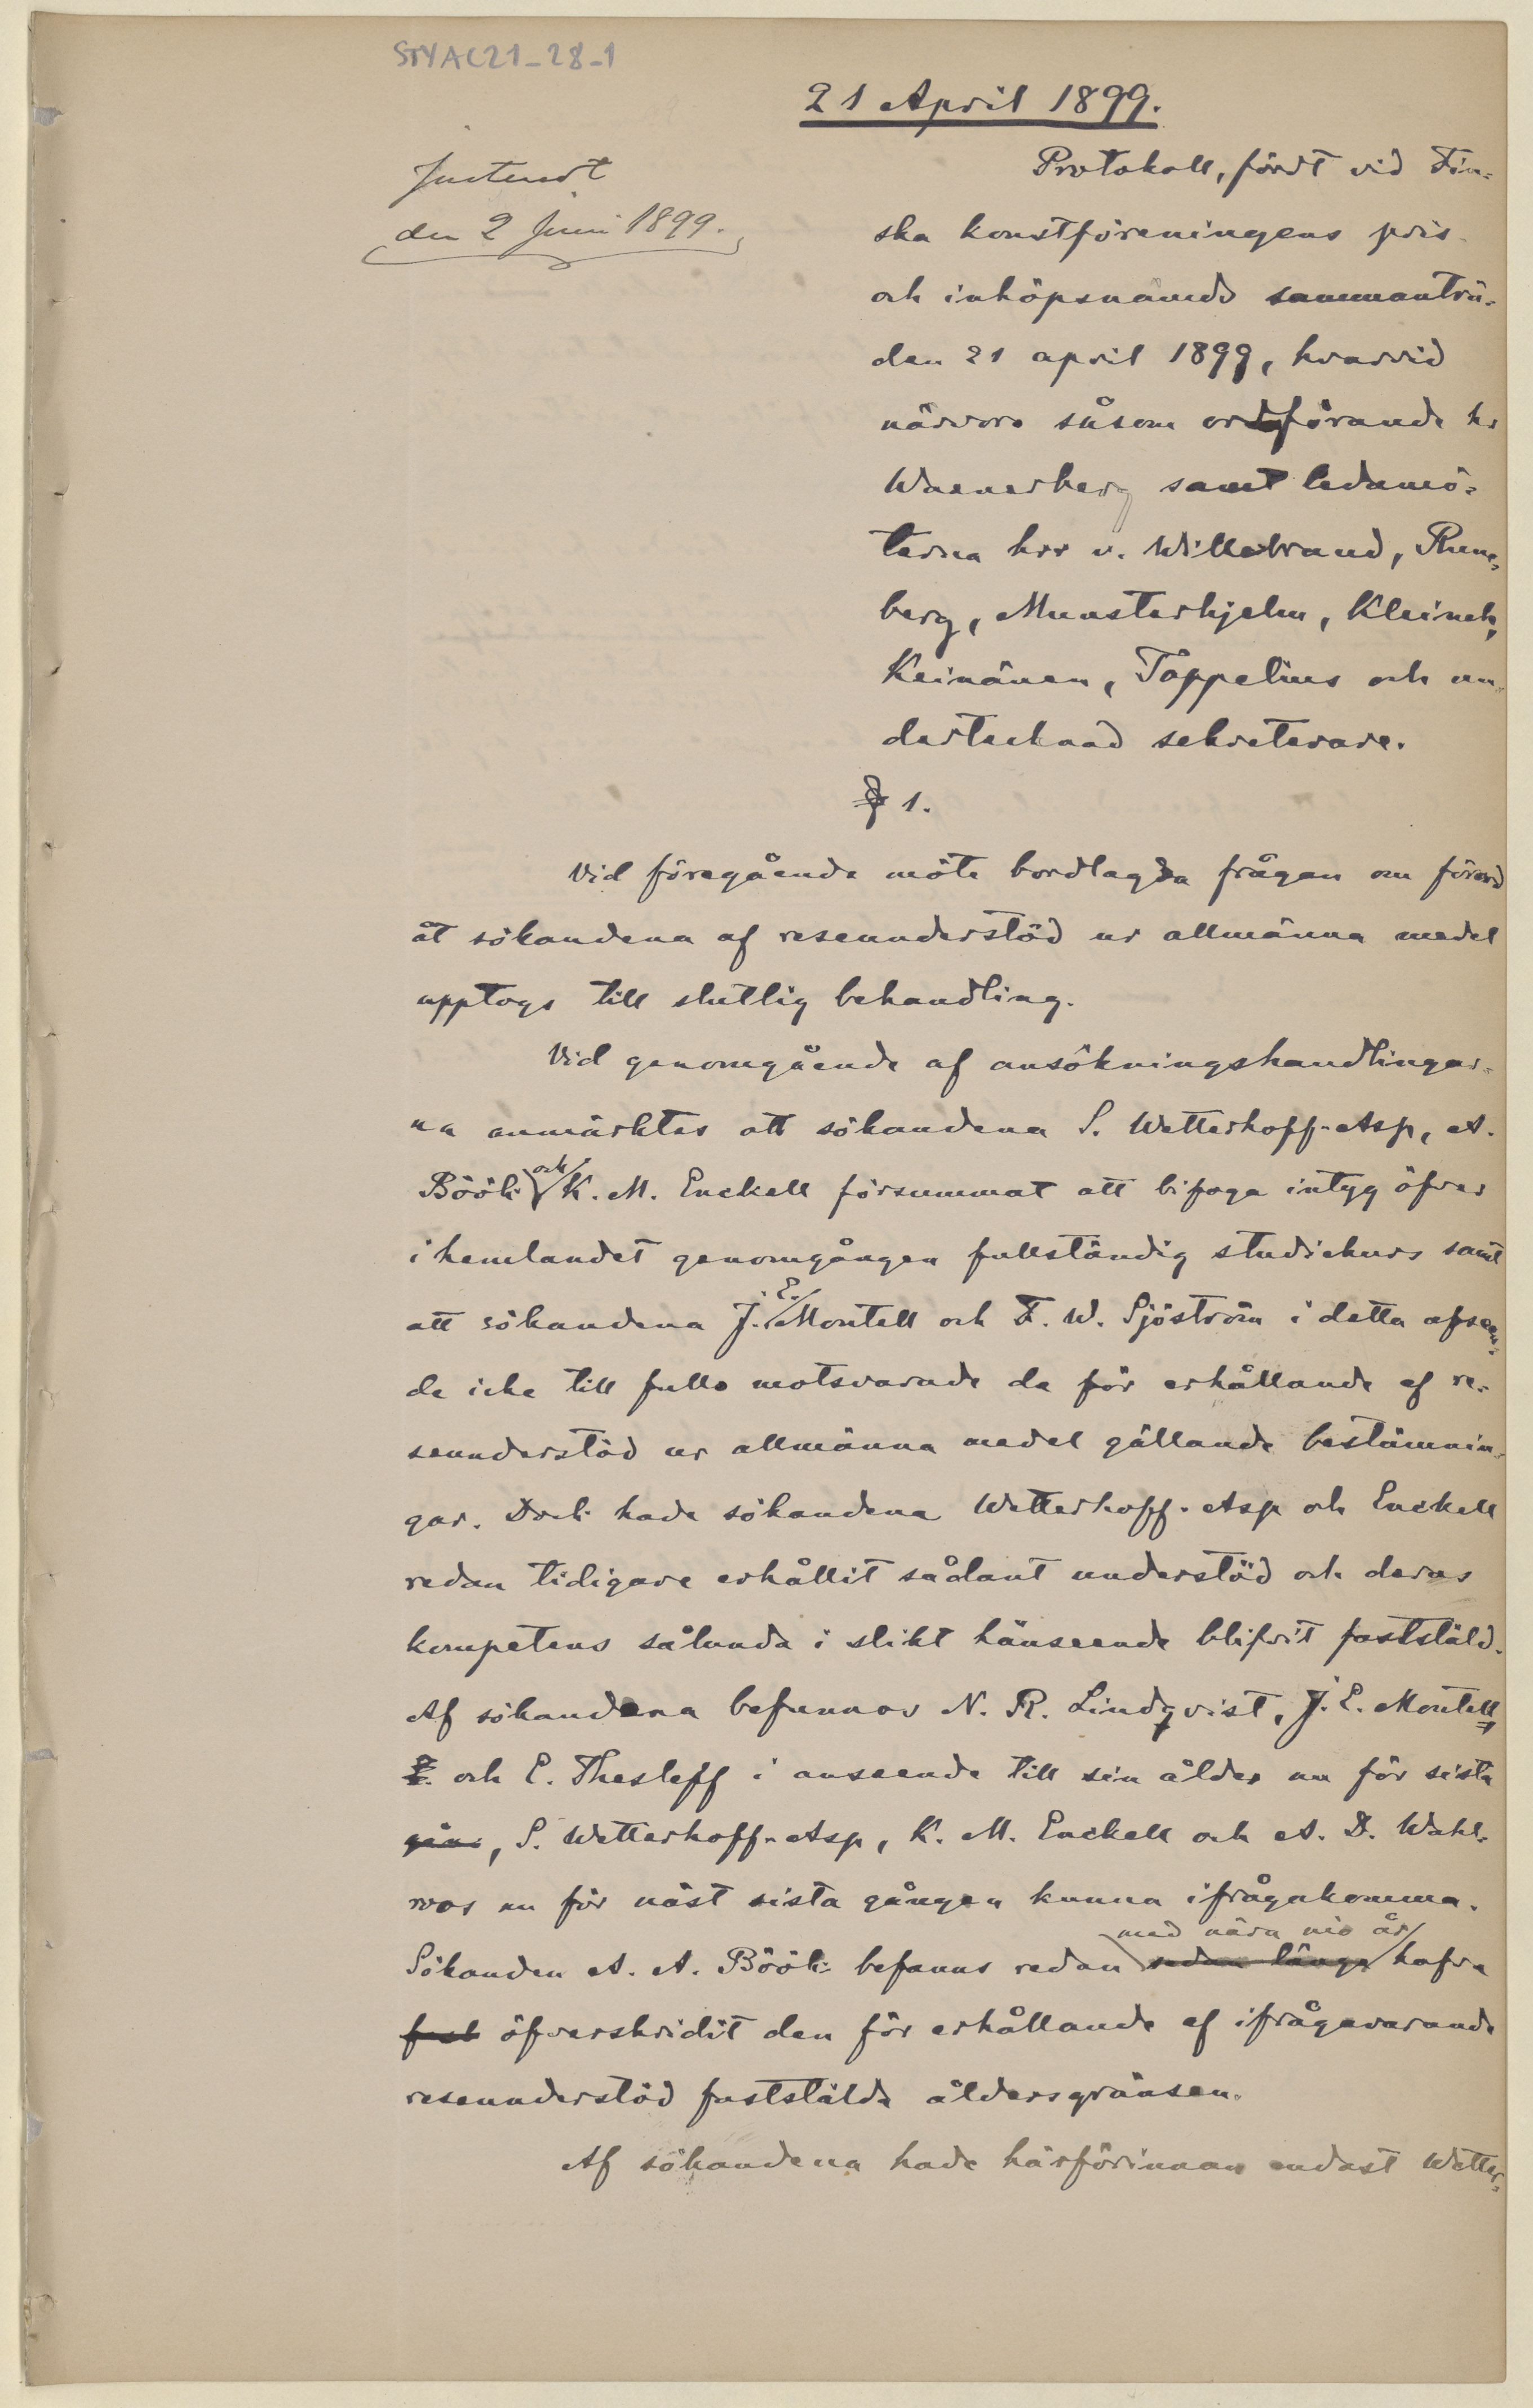 STYAC21_28_1
21 April 1899.
Justerat
den 2 Juni 1899.
Protokoll, fördt vid Fin-
ska konstföreningens pris-
och inköpsnämds sammanträ-
den 21 april 1899, hvarvid
närvoro såsom ordförande hr
Waenerberg samt ledamö-
terna hrr v. Willebrand, Rune-
berg, Munsterhjelm, Kleineh,
Keinänen, Töppelius och un-
dertecknad sekreterare.
§ 1.
Vid föregående möte bordlagda frågan om förord
åt sökandena af reseunderstöd ur allmänna medel
upptogs till slutlig behandling.
Vid genomgående af ansökningshandlingar-
na anmärktes att sökandena S. Wetterhoff-Asp, A.
Böök och K. M. Enckell försummat att bifoga intyg öfver
i hemlandet genomgången fullständig studiekurs samt
att sökandena J. E. Montell och F. W. Sjöström i detta afseen-
de icke till fullo motsvarade de för erhållande af re-
seunderstöd ur allmänna medel gällande bestämnin-
gar. Dock hade sökandena Wetterhoff-Asp och Enckell
redan tidigare erhållit sådant understöd och deras
kompetens sålunda i slikt hänseende blifvit fastställd.
Af sökandena befunnos N. R. Lindqvist, J. E. Montell
och E. Thesleff i anseende till sin ålder nu för sista
gån, S. Wetterhoff-Asp, K. M. Enckell och A. D. Wahl-
roos nu för näst sista gången kunna ifrågakomma.
med nära nio år
Sökanden A. A. Böök befanns redan sedan länge hafva
öfverskridit den för erhållande af ifrågavarande
reseunderstöd faststälda åldersgränsen.
Af sökandena hade härförinnan endast Wetter-